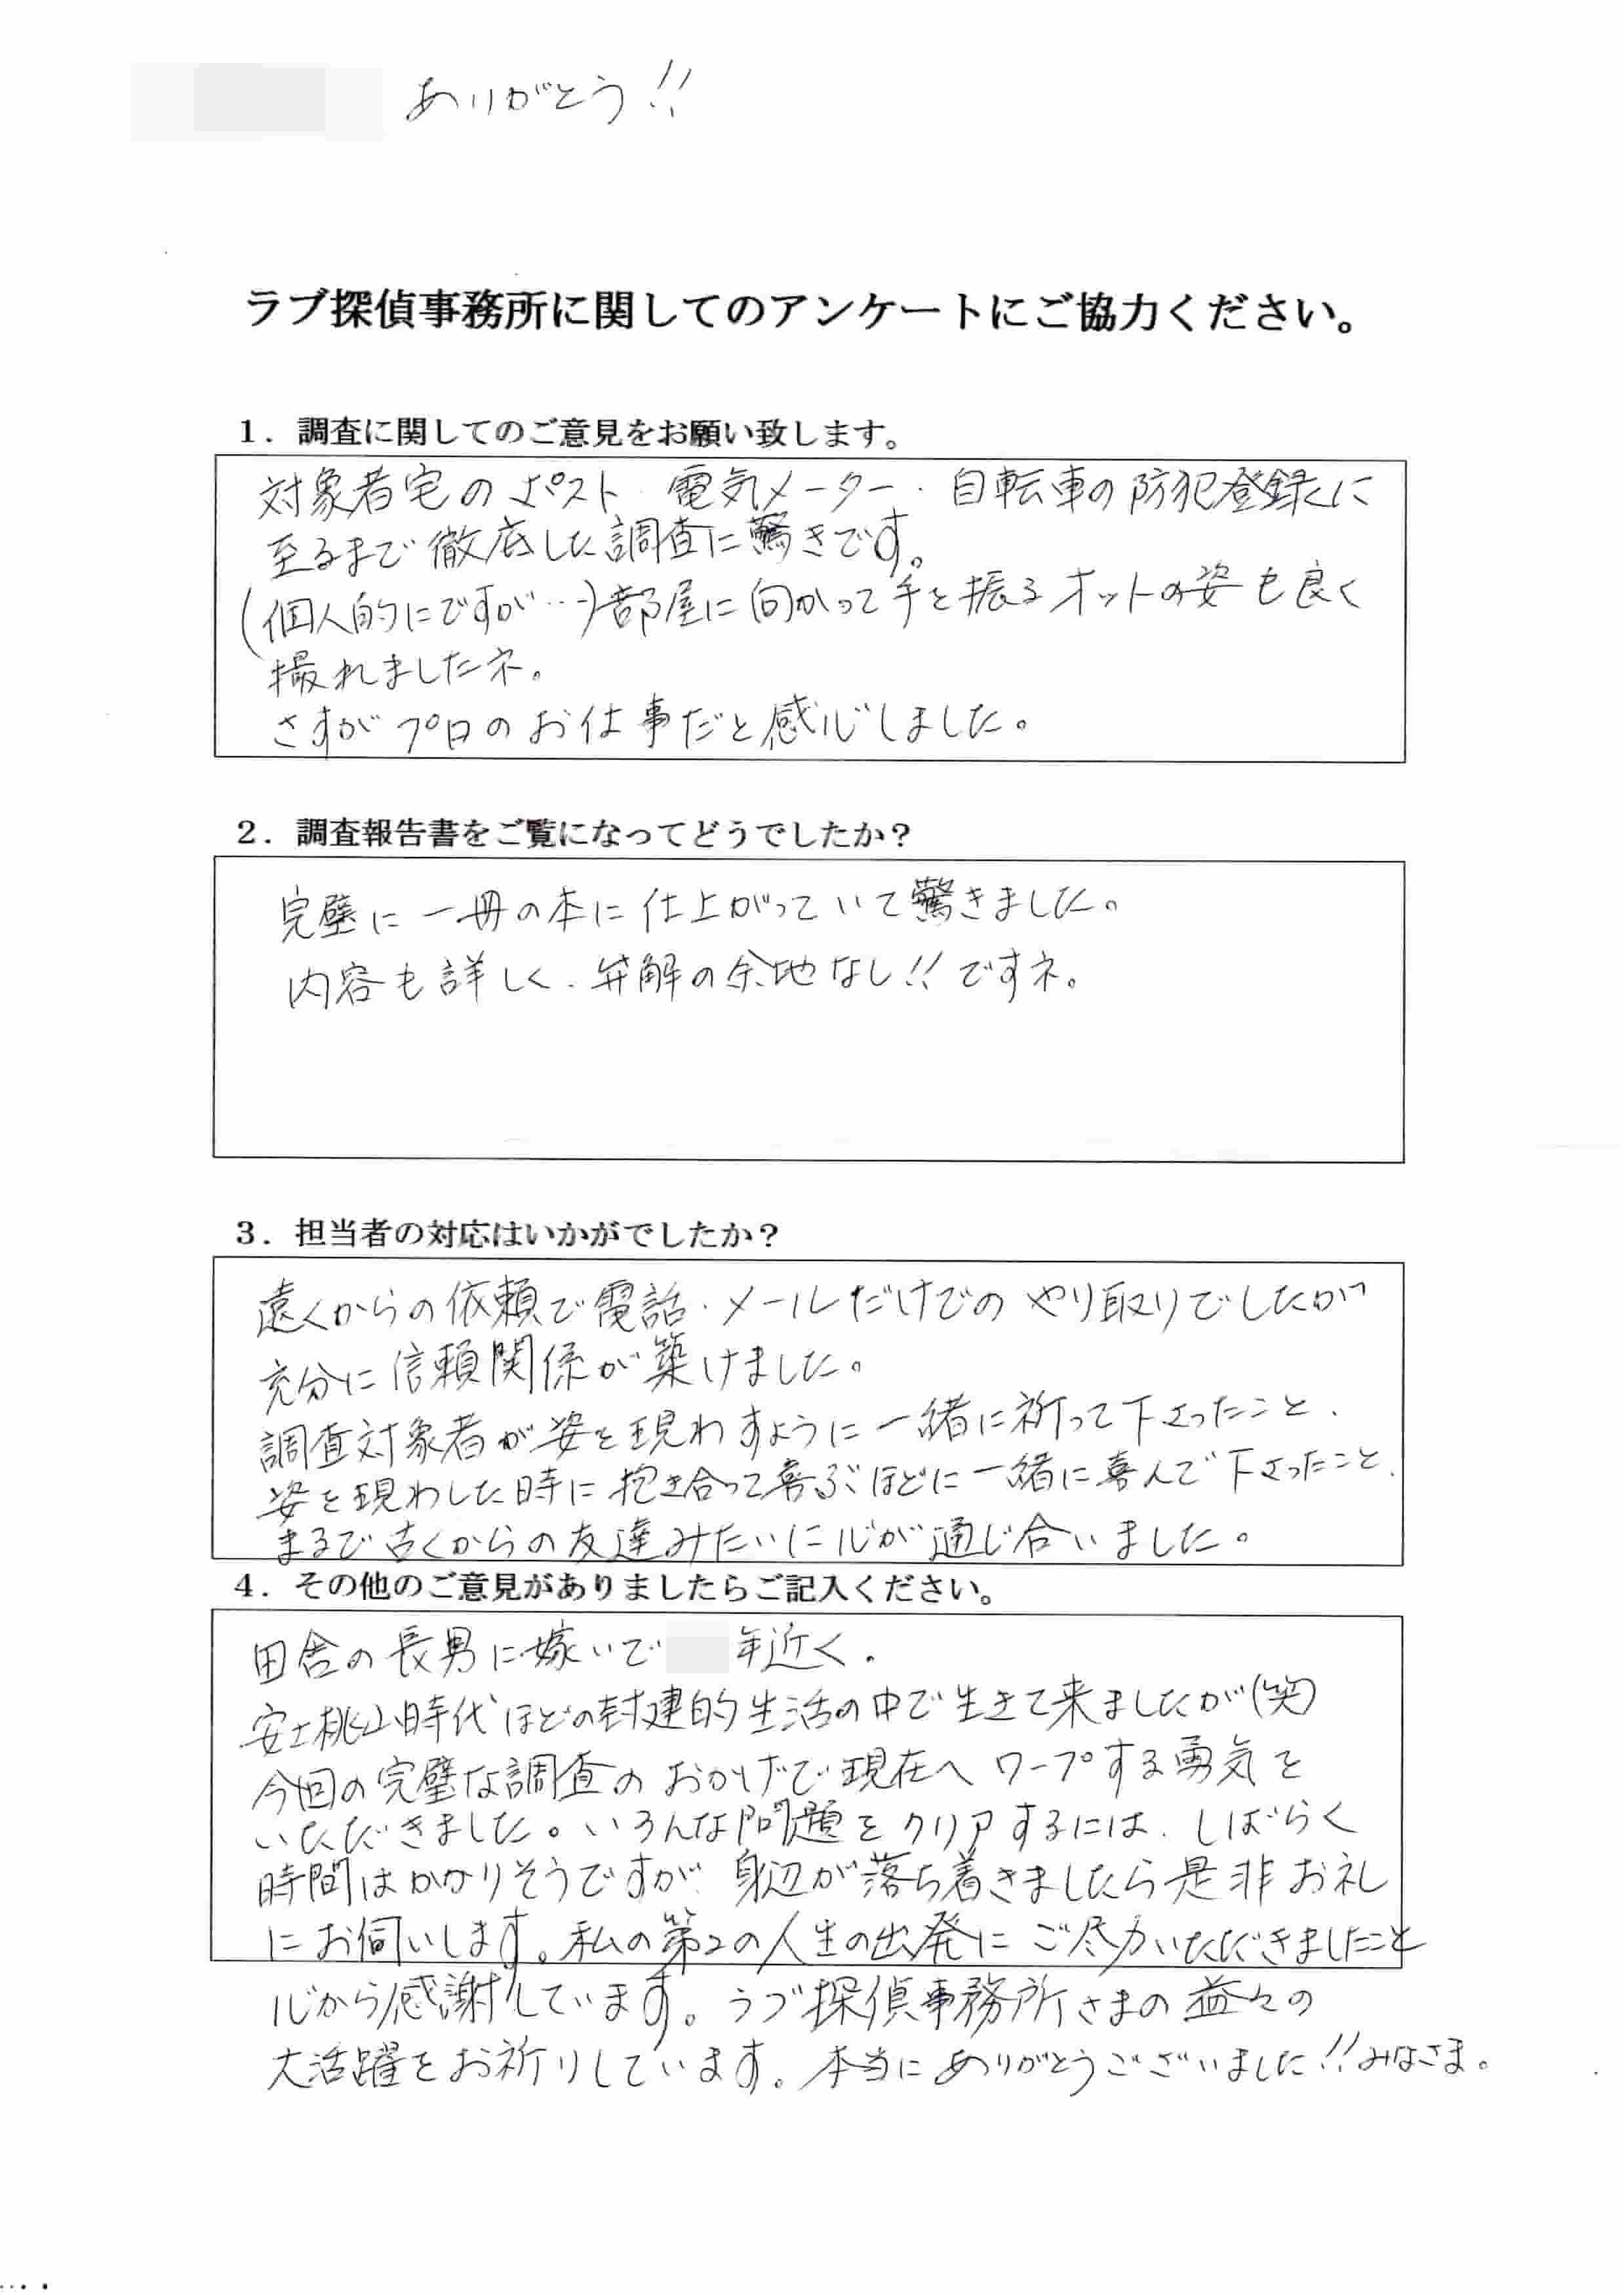 ありがとう!!
ラブ探偵事務所に関してのアンケートにご協力ください。
1．調査に関してのご意見をお願い致します。
対象者宅のポスト、電気メーター、自転車の防犯登録に
至るまで徹底した調査に驚きです。
(個人的にですが…)部屋に向かって手を振るオットの姿も良く
撮れましたネ。
さすがプロのお仕事だと感心しました。
2．調査報告書をご覧になってどうでしたか？
完璧に一冊の本に仕上がっていて驚きました。
内容も詳しく、弁解の余地なし!!ですネ。
3．担当者の対応はいかがでしたか？
遠くからの依頼で電話、メールだけでのやり取りでしたが
充分に信頼関係が築けました。
調査対象者が姿を現わすように一緒に祈って下さったこと、
姿を現わした時に抱き合って喜ぶほどに一緒に喜んで下さったこと、
まるで古くからの友達みたいに心が通じ合いました。
4．その他のご意見がありましたらご記入ください。
田舎の長男に嫁いで 年近く、
安土桃山時代ほどの封建的生活の中で生きて来ましたが(笑)
今回の完璧な調査のおかげで現在へワープする勇気を
いただきました。いろんな問題をクリアするには、しばらく
時間はかかりそうですが、身辺が落ち着きましたら是非お礼
にお伺いします。私の第2の人生の出発にご尽力いただきましたこと
心から感謝しています。ラブ探偵事務所さまの益々の
大活躍をお祈りしています。本当にありがとうございました!!みなさま。